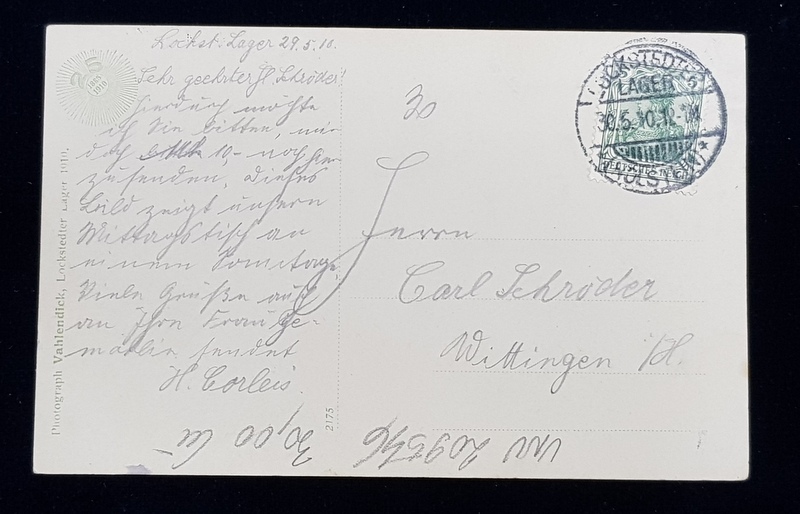 Lockst. Lager 29.5.10.
Sehr geehrter H. Schröder!
Hierdurch möchte
ich Sie bitten, mir
doch Mk 10- noch her
zusenden. Dieses
Bild zeigt unsern
Mittagstisch an
einem Sonntage.
Viele Grüße auch
an Ihre Frau Ge-
mahlin sendet
H. Corleis.
Photograph Vahlendick, Lockstedter Lager 1910.
25
1885
1910
2175
30
LOCKSTEDTER
LAGER
30.5.10.12-1N
(HOLSTEIN)
DEUTSCHES REICH
Herrn
Carl Schröder
Wittingen i/H.
30,00